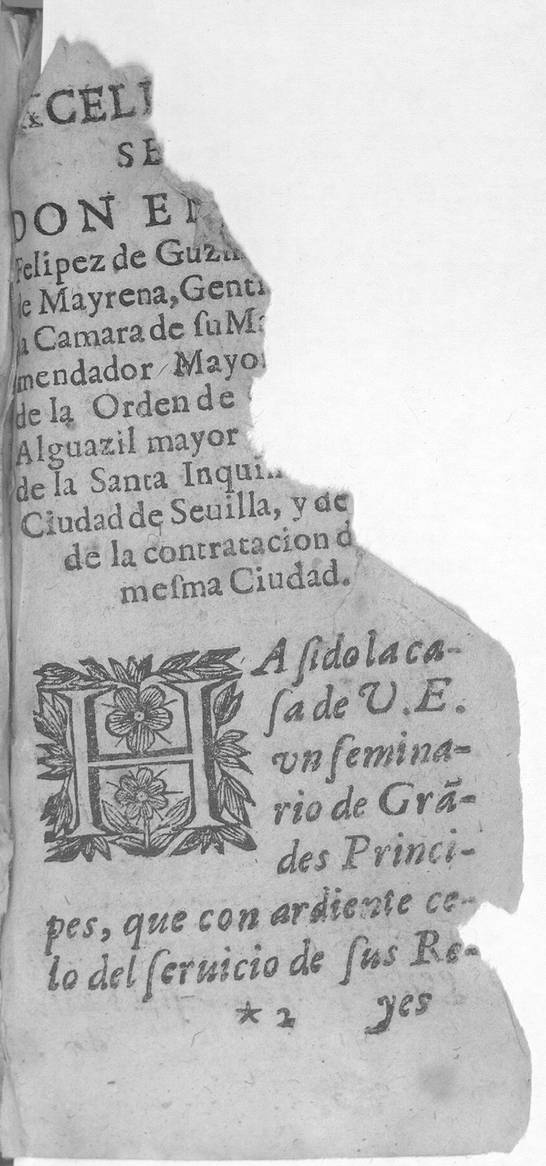 XCELL
SE
DON EN
Felipez de Guzm
de Mayrena, Genti
a Camara de ſu Ma
mendador Mayor
de la Orden de
Alguazil mayor
de la Santa Inqui
Ciudad de Seuilla, y de
de la contratacion d
meſma Ciudad.
HA ſido la ca-
ſa de V. E.
vn ſemina-
rio de Grã-
des Princi-
pes, que con ardiente ce-
lo del ſeruicio de ſus Re-
* 2 yes